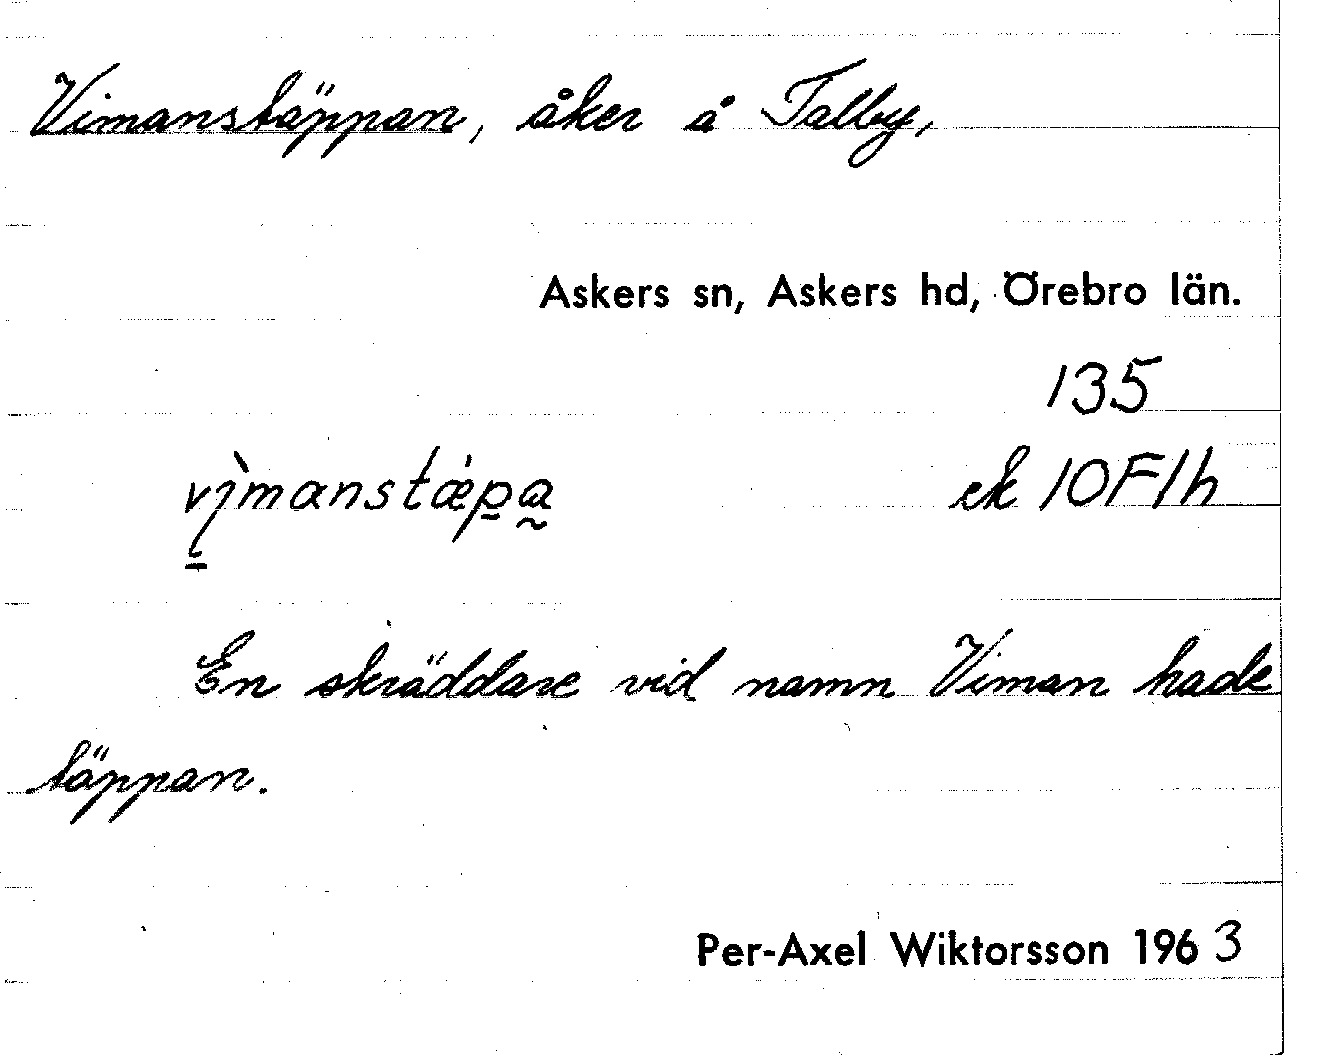 Vimanstäppan, åker å Talby,
Askers sn, Askers hd, Örebro län.
135
vı̀manstǽpa ek 10F1h
En skräddare vid namn Viman hade
täppan.
Per-Axel Wiktorsson 1963